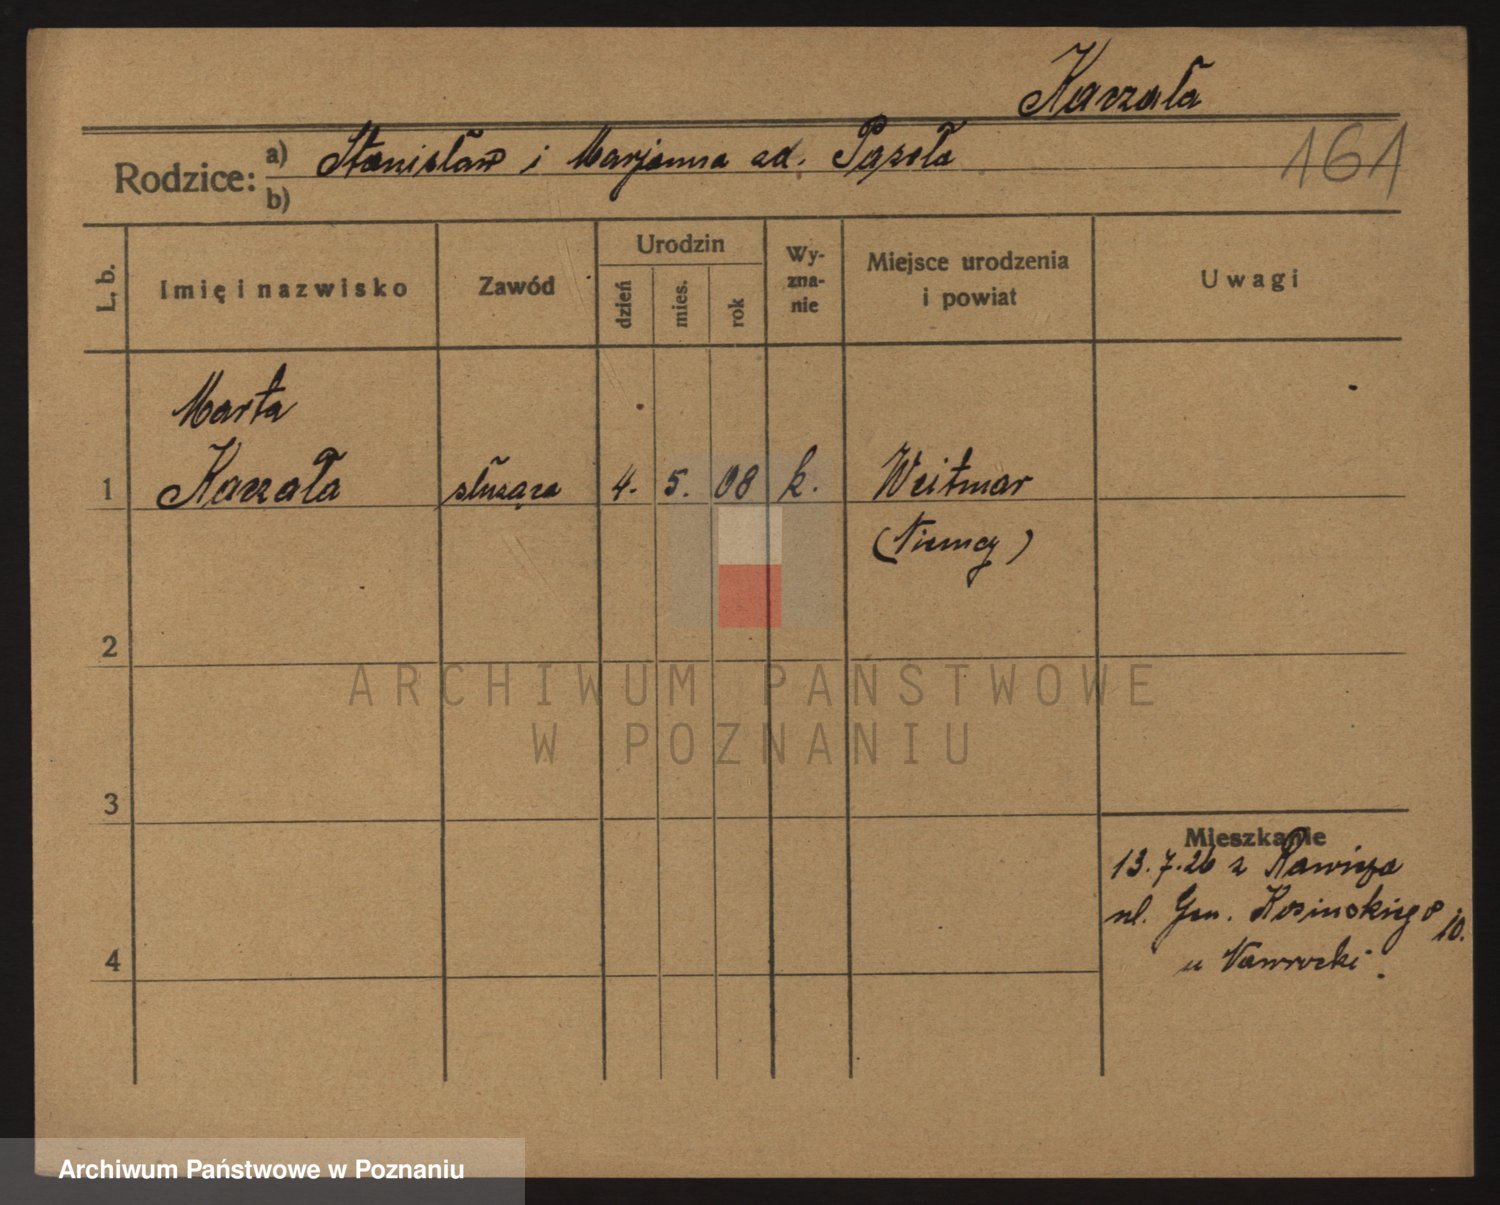 Karzała
161
Rodzice:
a) Stanisław i Marjanna zd.
b)
L. b.
Imię i nazwisko
Zawód
Urodzin
dzień
mies.
rok
Wy-
zna-
nie
Miejsce urodzenia
i powiat
Uwagi
Marta
1 Karzała służąca 4. 5. 08 k. Weitmar
(Niemcy)
2
3
4
Mieszkanie
13.7.26 z Rawicza
ul. Gen. Kosinskiego 10.
u Nawrocki.
ARCHIWUM PAŃSTWOWE
W POZNANIU
Archiwum Państwowe w Poznaniu